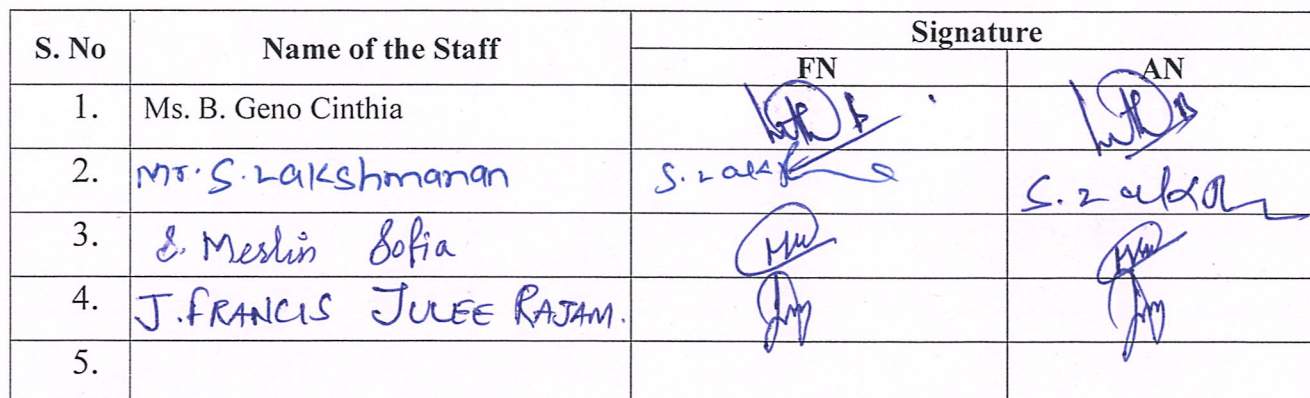 S. No Name of the Staff Signature
FN AN
1. Ms. B. Geno Cinthia
2. Mr. S. Lakshmanan
3. S. Merlin Sofia
4. J. FRANCIS JULEE RAJAM.
5.